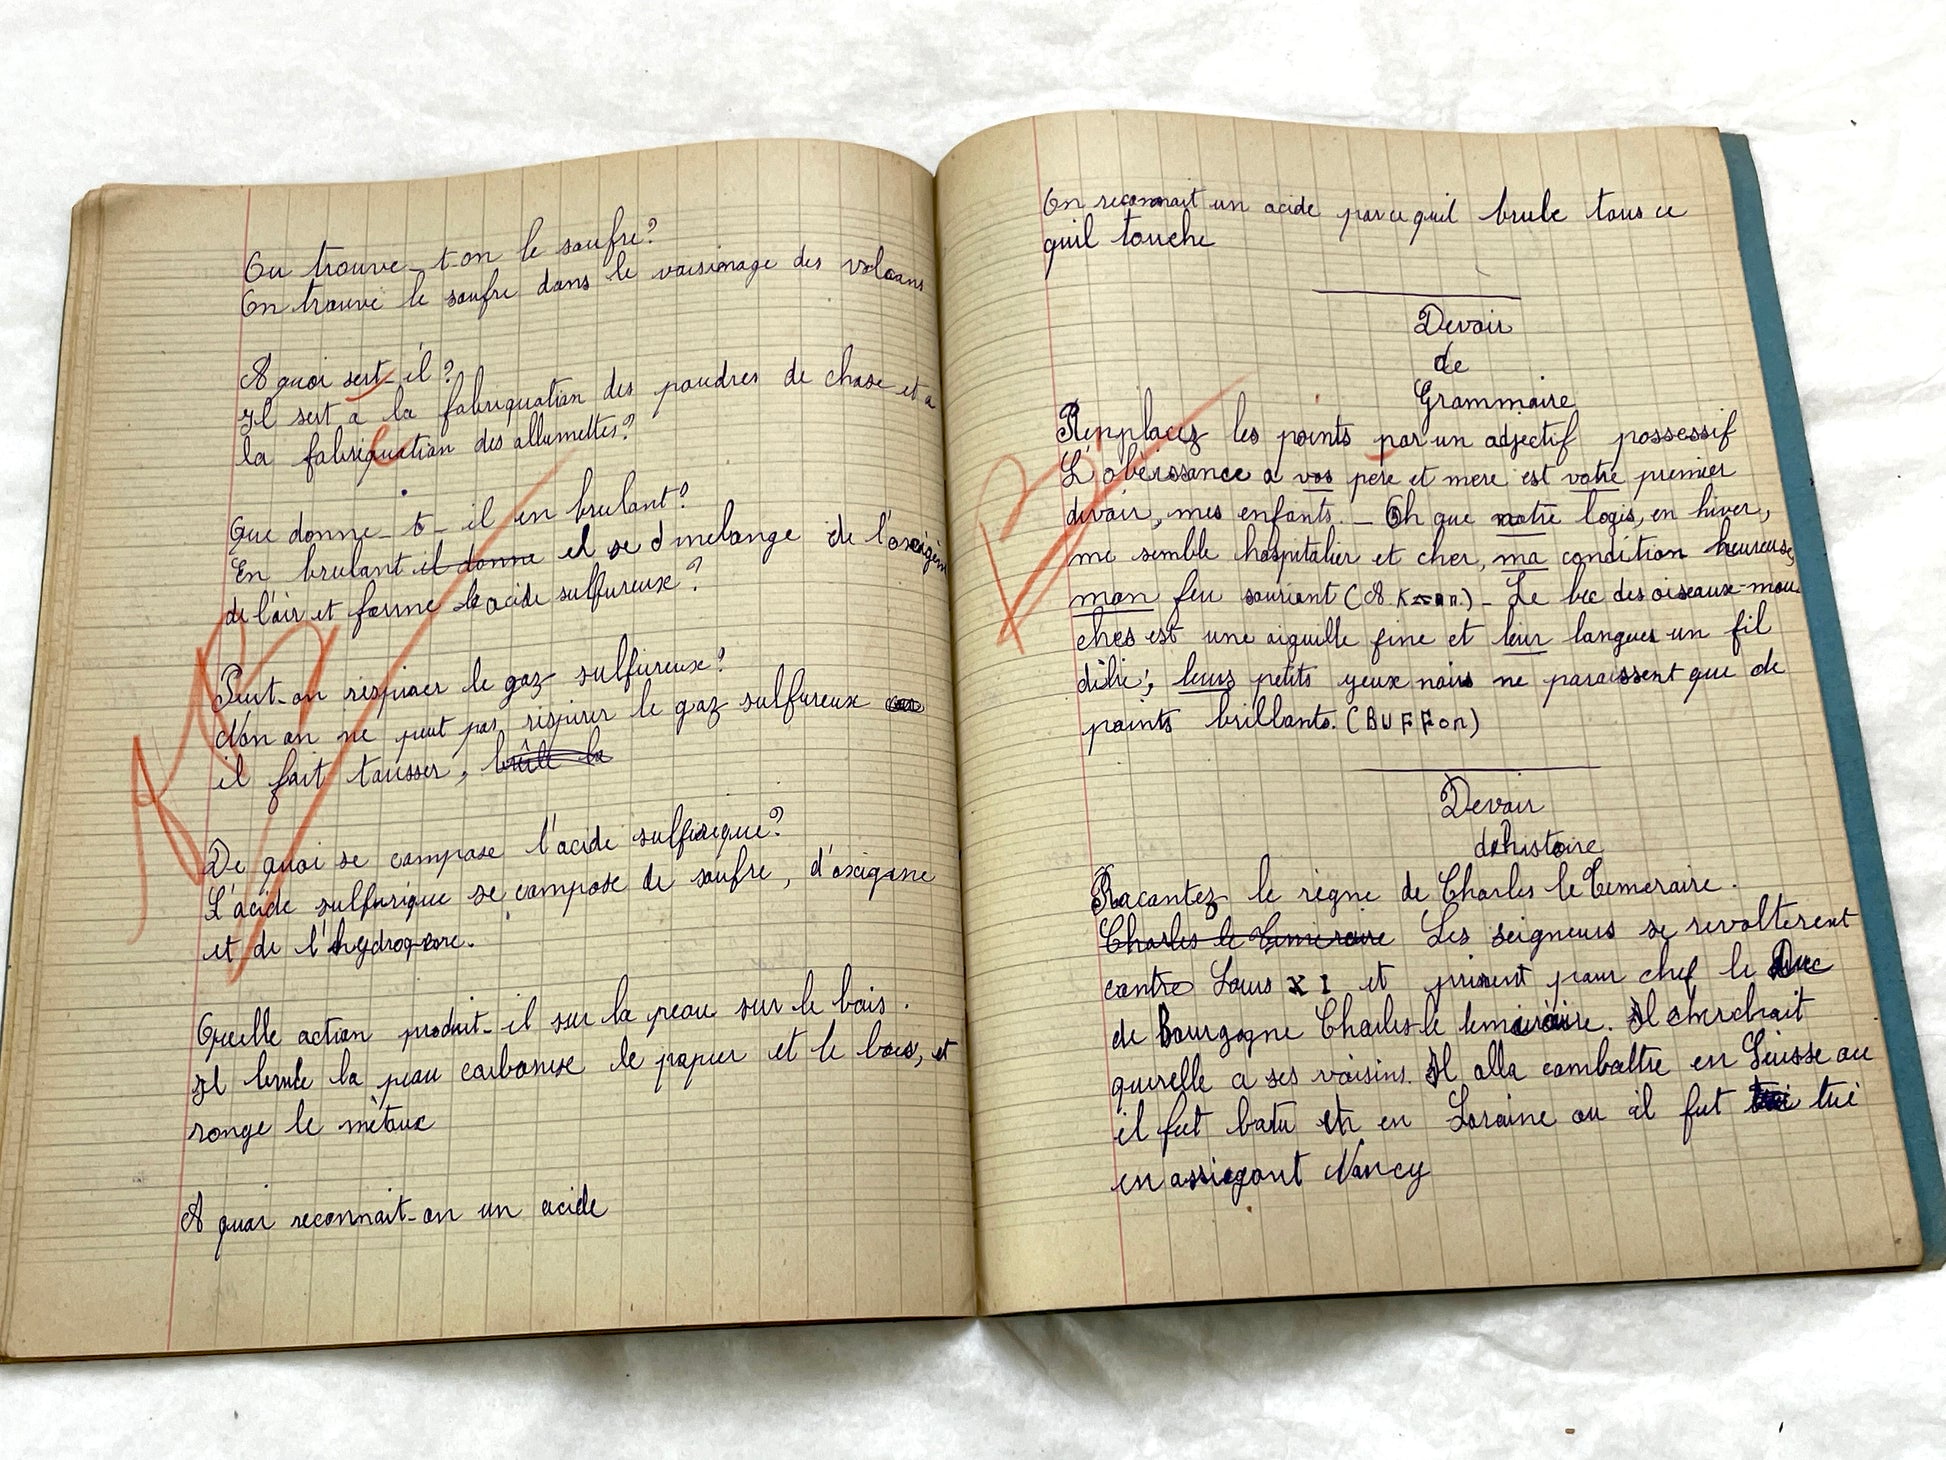 Ou trouve-t-on le soufre?
On trouve le soufre dans le voisinage des volcans
A quoi sert-il?
Il sert a la fabriquation des poudres de chase et a
la fabriquation des allumettes?
Que donne-t-il en brulant?
En brulant il donne il se melange de l'oxigène
de l'air et forme acide sulfureux?
Peut-on respirer le gaz sulfureux?
Non on ne peut pas respirer le gaz sulfureux
il fait tousser, brûlé la
De quoi se compose l'acide sulfurique?
L'acide sulfurique se compose de soufre, d'oxigene
et de l'hydrogene.
Quelle action produit-il sur la peau sur le bois.
Il brule la peau carbonise le papier et le bois, et
ronge le métaux
A quoi reconnait-on un acide
On reconnait un acide parce quil brule tous ce
quil touche
Devoir
de
Grammaire
Remplacez les points par un adjectif possessif
L'obeissance a vos père et mere est votre premier
devoir, mes enfants. _ Oh que notre logis, en hiver,
me semble hospitalier et cher, ma condition heureuse,
mon feu souriant (A. Karr.) _ Le bec des oiseaux-mou
ches est une aiguille fine et leur langues un fil
délié; leurs petits yeux noirs ne paraissent que de
points brillants. (BUFFon)
Devoir
dehistoire
Racontez le règne de Charles le Temeraire.
Charles le Temeraire Les seigneurs se revolterent
contre Louis XI et prirent pour chef le Duc
de Bourgogne Charles le temeraire. Il cherchait
querelle a ses voisins. Il alla combattre en Suisse ou
il fut batu et en Loraine ou il fut tué
en assiegant Nancy